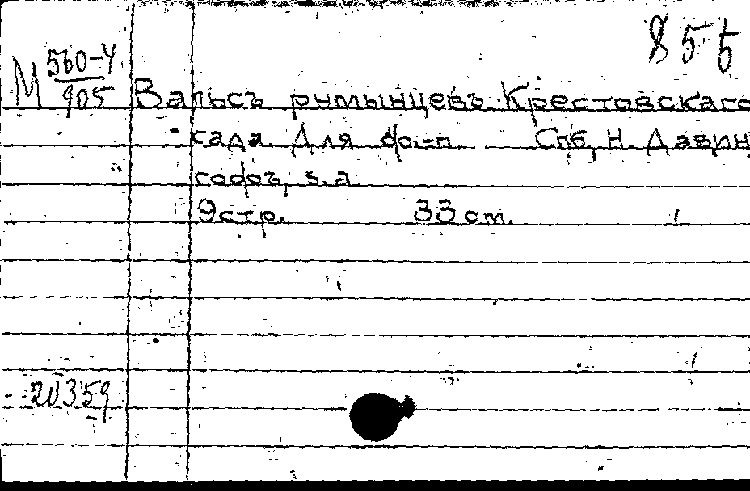 855
М 560-4
905
Вальсъ румынцевъ Крестовскаго
сада. Для фо.-п. Спб, Н. Давин
гофъ, s.a.
9стр. 33 см. 1
20359